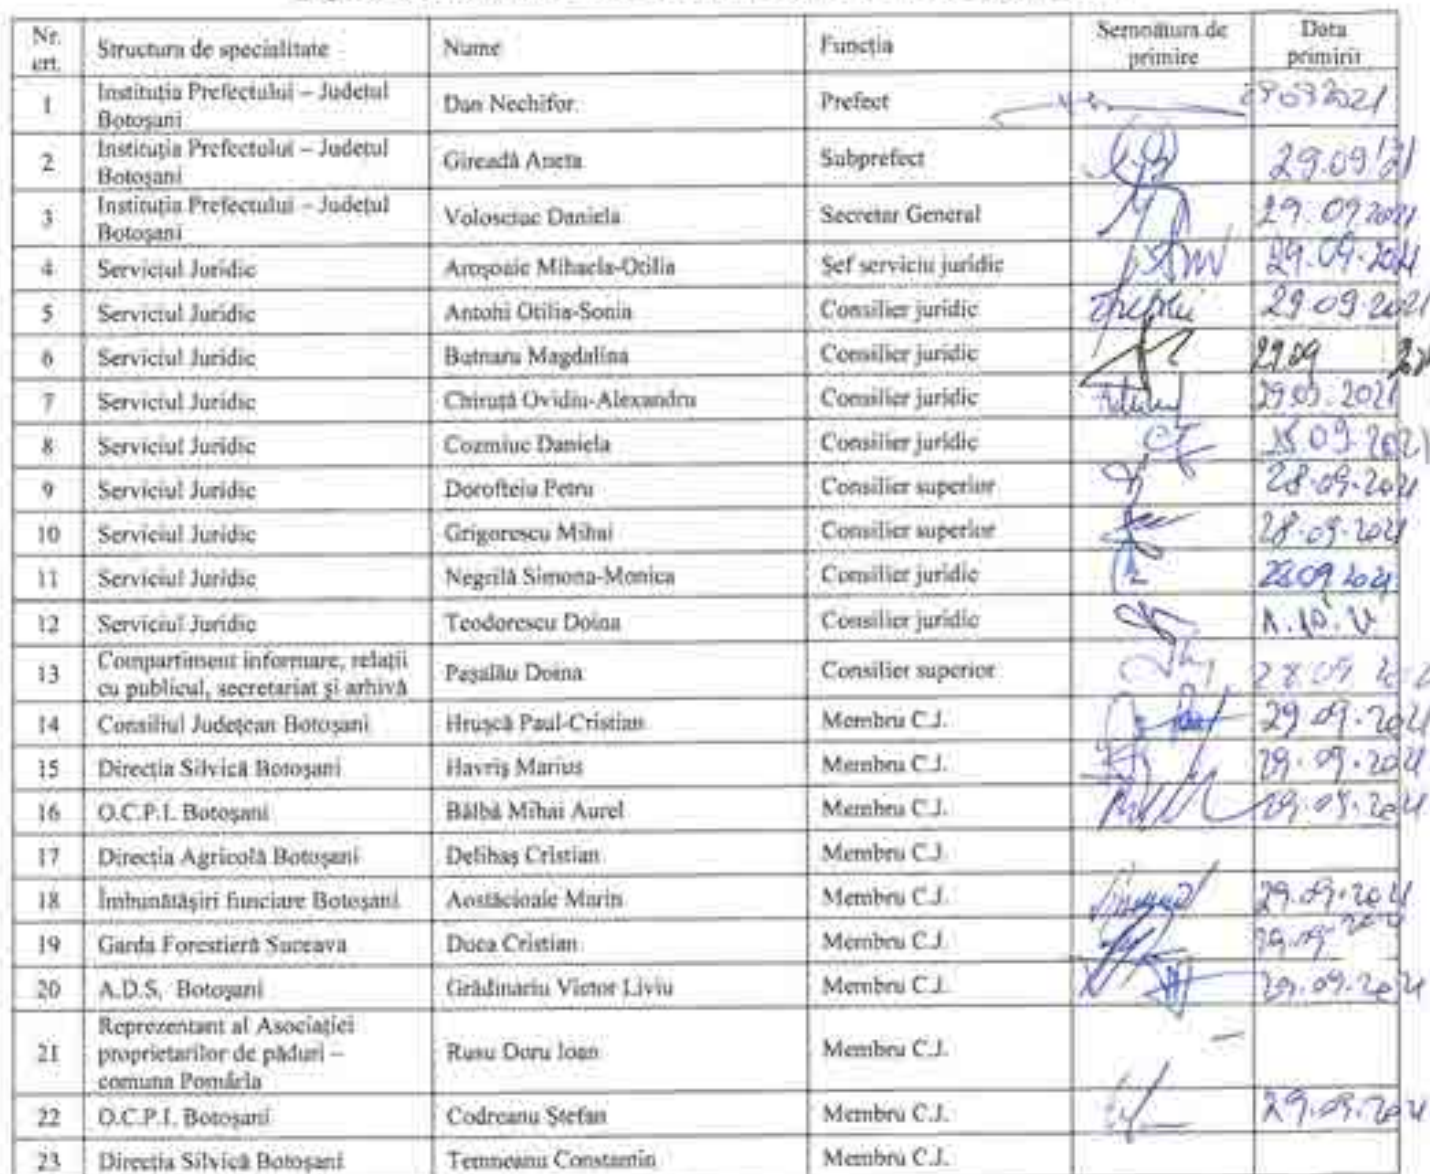 Nr. crt. Structura de specialitate Nume Funcția Semnătura de primire Data primirii
1 Instituția Prefectului – Județul Botoșani Dan Nechifor Prefect 29 09 2021
2 Instituția Prefectului – Județul Botoșani Gireadă Aneta Subprefect 29.09
3 Instituția Prefectului – Județul Botoșani Volosciuc Daniela Secretar General 29.09 2021
4 Serviciul Juridic Aroșoaie Mihaela-Otilia Șef serviciu juridic 29.09.2021
5 Serviciul Juridic Antohi Otilia-Sonia Consilier juridic 29 09 2021
6 Serviciul Juridic Butnaru Magdalina Consilier juridic 29.09
7 Serviciul Juridic Chiruță Ovidiu-Alexandru Consilier juridic 29.09.2021
8 Serviciul Juridic Cozmiuc Daniela Consilier juridic
9 Serviciul Juridic Dorofteiu Petru Consilier superior 28.09.2021
10 Serviciul Juridic Grigorescu Mihai Consilier superior 28.09.2021
11 Serviciul Juridic Negrilă Simona-Monica Consilier juridic 28.09 2021
12 Serviciul Juridic Teodorescu Doina Consilier juridic
13 Compartiment informare, relații cu publicul, secretariat și arhivă Pașalău Doina Consilier superior 28.09
14 Consiliul Județean Botoșani Hrușcă Paul-Cristian Membru C.J. 29.09.2021
15 Direcția Silvică Botoșani Havriș Marius Membru C.J. 29.09.2021
16 O.C.P.I. Botoșani Bălbă Mihai Aurel Membru C.J. 29.09.2021
17 Direcția Agricolă Botoșani Delibaș Cristian Membru C.J.
18 Îmbunătășiri funciare Botoșani Aostăcioaie Marin Membru C.J. 29.09.2021
19 Garda Forestieră Suceava Duca Cristian Membru C.J. 29.09.2021
20 A.D.S. Botoșani Grădinariu Victor Liviu Membru C.J. 29.09.2021
21 Reprezentant al Asociației proprietarilor de păduri – comuna Pomârla Rusu Doru Ioan Membru C.J.
22 O.C.P.I. Botoșani Codreanu Ștefan Membru C.J. 29.09.2021
23 Direcția Silvică Botoșani Temneanu Constantin Membru C.J.